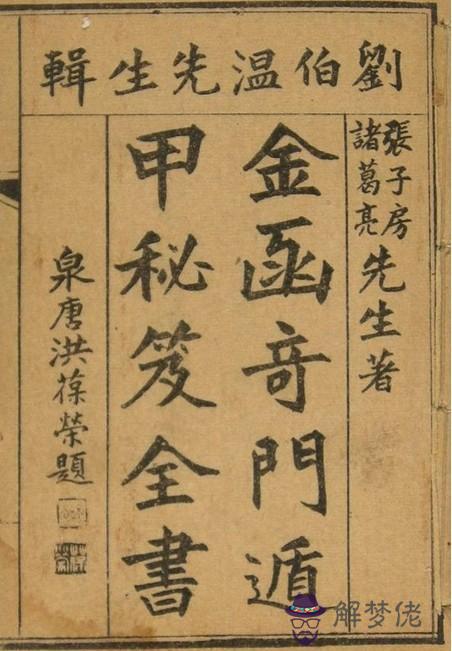 劉伯温先生輯
張子房
諸葛亮
先生著
金函奇門遁
甲秘笈全書
泉唐洪葆榮題
解梦佬